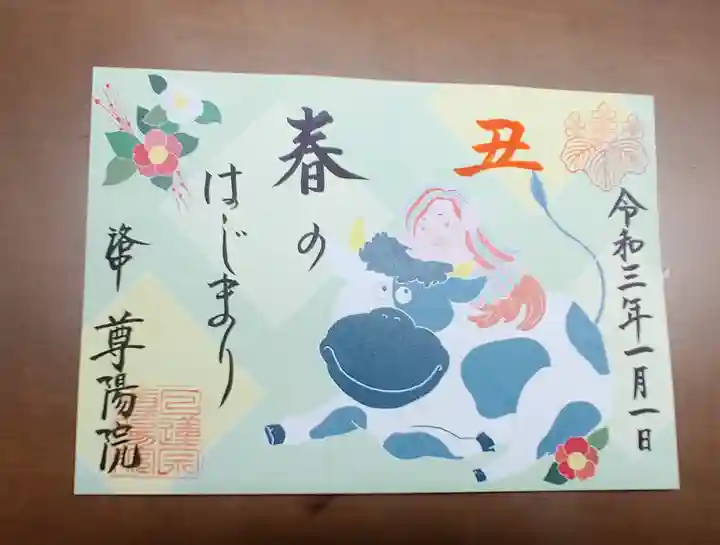 令和三年一月一日
丑
春の
はじまり
洛中
尊陽院